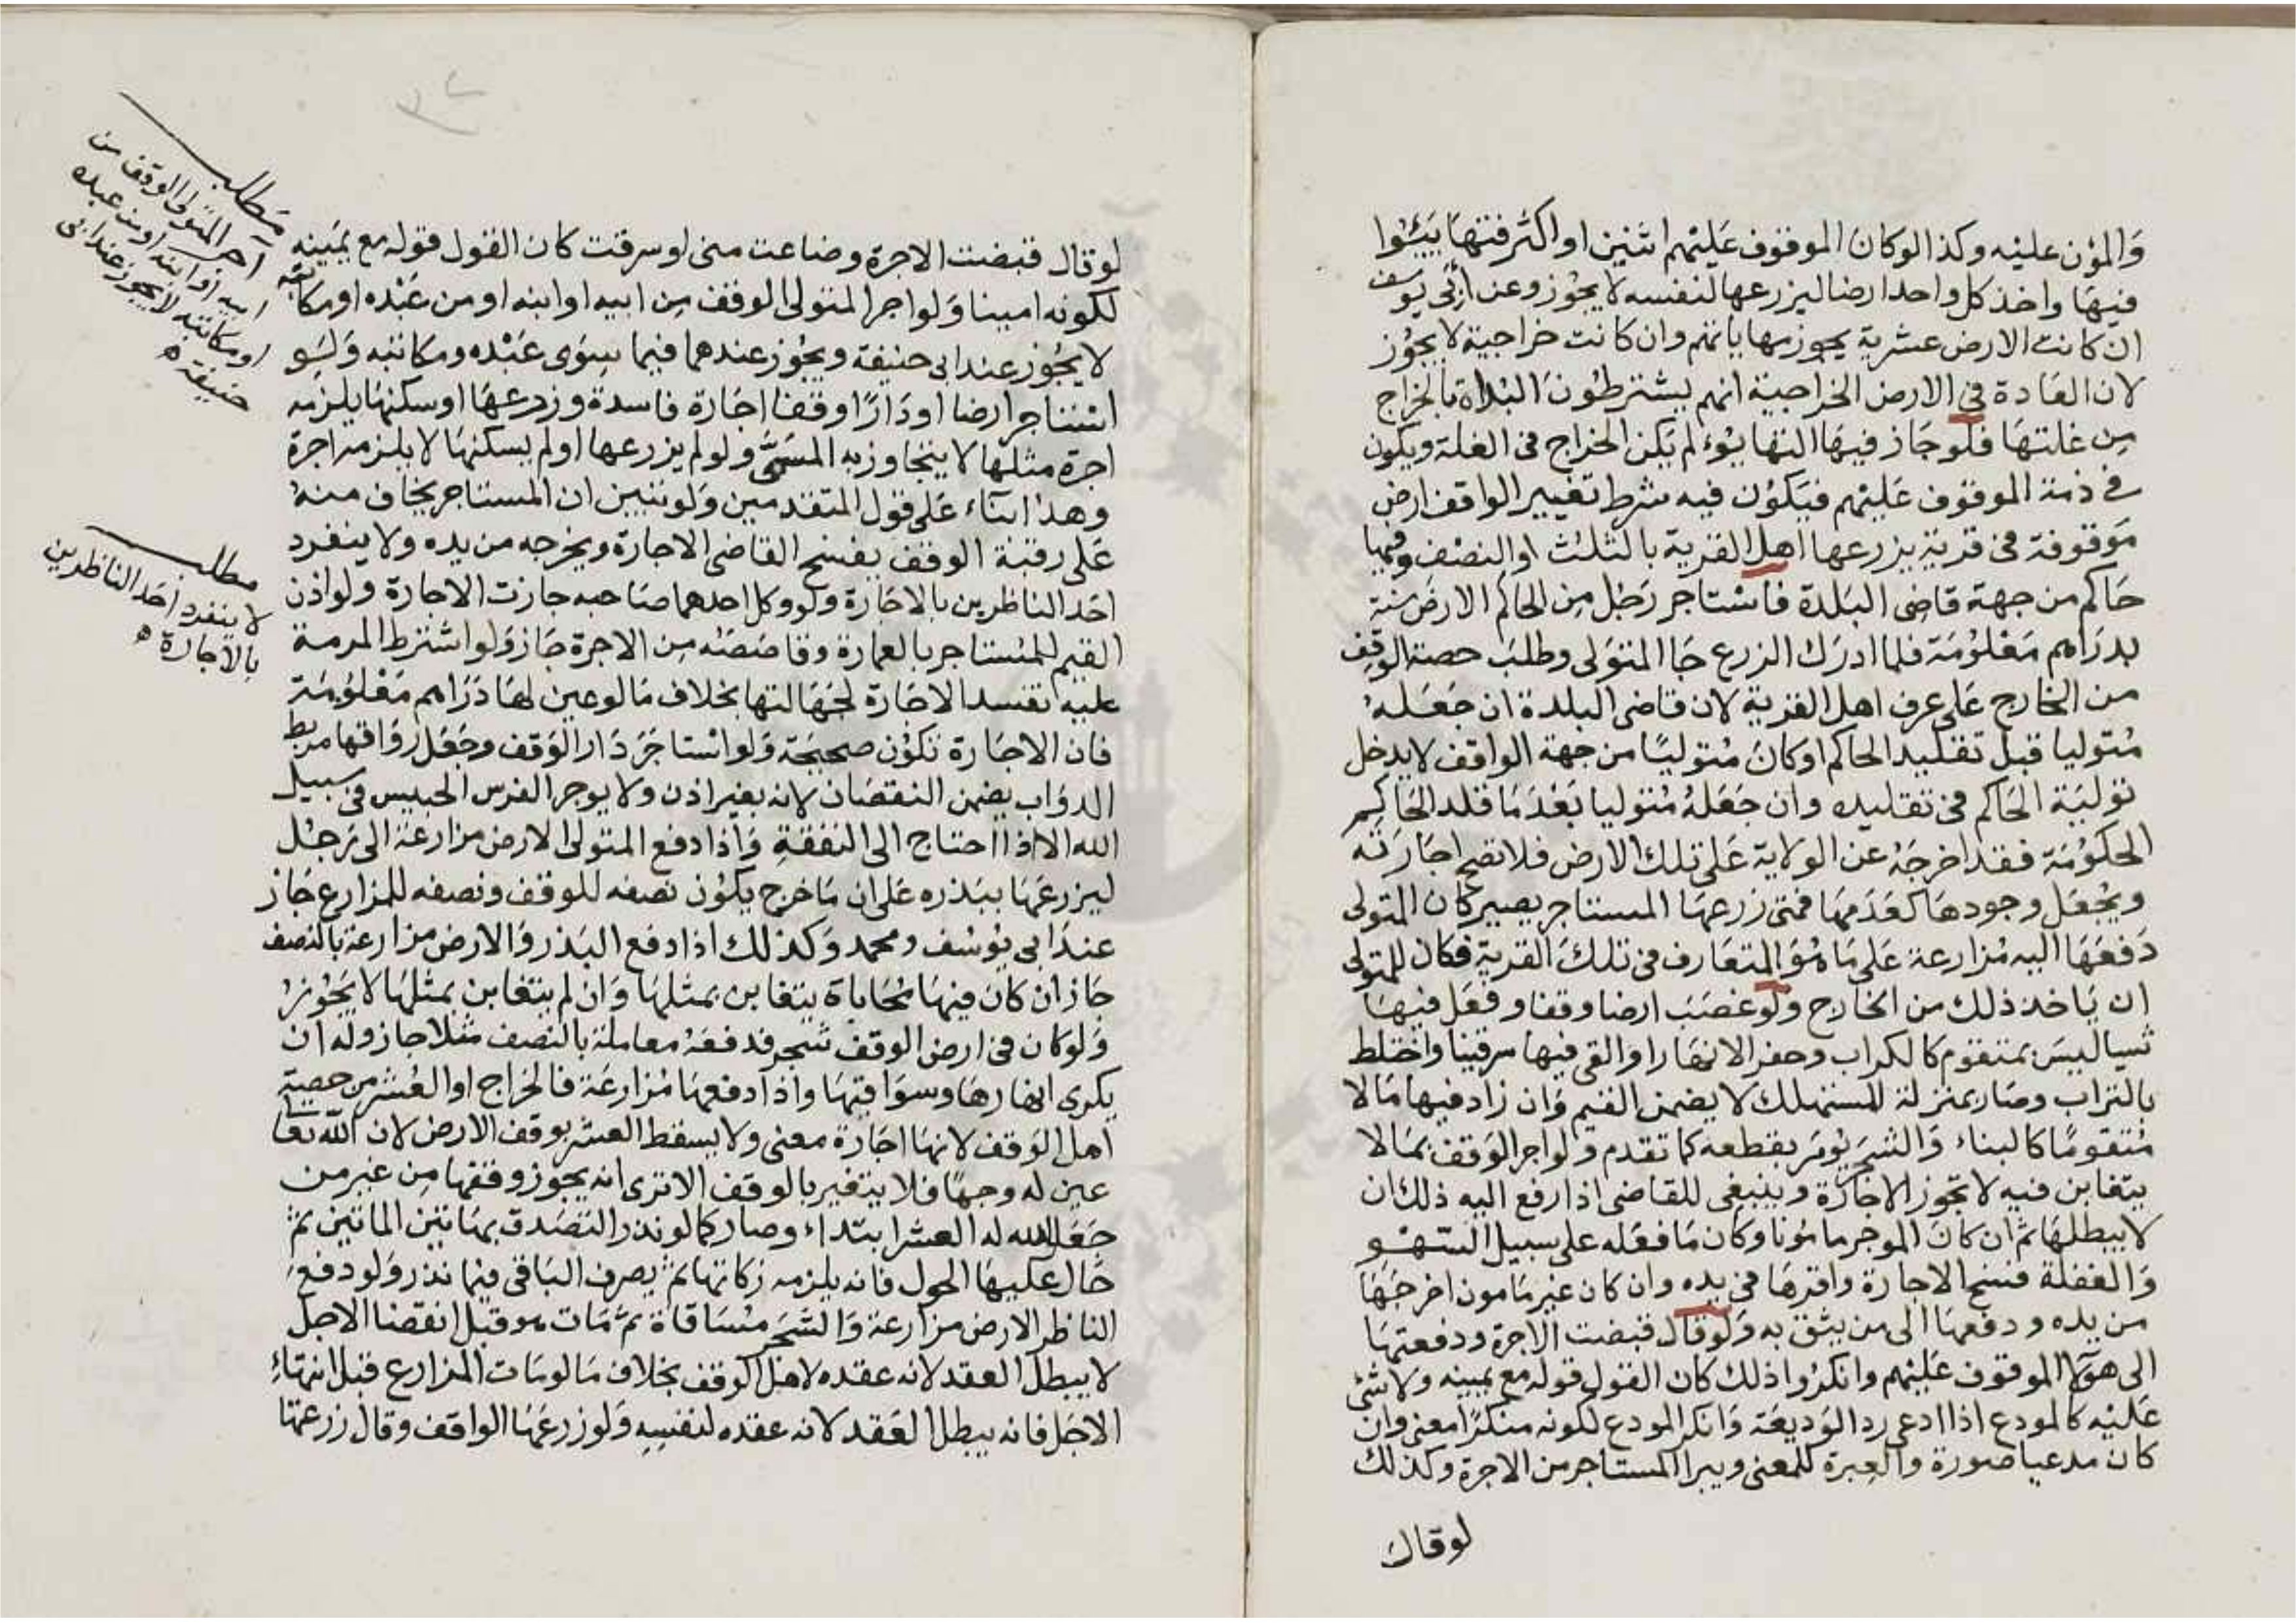 والمؤن عليه وكذا لو كان الموقوف عليهم اثنين او اكثر فتهايئوا
فيها واخذ كل واحد ارضا ليزرعها لنفسه لا يجوز وعن ابي يوسف
ان كانت الارض عشرية يجوز مهاياتهم وان كانت خراجية لا يجوز
لان العادة في الارض الخراجية انهم يشترطون البداة بالخراج
من غلتها فلو جاز فيها التهايؤ لم يكن الخراج في الغلة ويكون
في ذمة الموقوف عليهم فيكون فيه شرط تغيير الواقف ارض
موقوفة في قرية يزرعها اهل القرية بالثلث او النصف وفيها
حاكم من جهة قاضي البلدة فاستاجر رجل من الحاكم الارض سنة
بدراهم معلومة فلما ادرك الزرع جا المتولى وطلب حصة الوقف
من الخارج على عرف اهل القرية لان قاضي البلدة ان جعله
متوليا قبل تقليد الحاكم او كان متوليا من جهة الواقف لا يدخل
تولية الحاكم في تقليده وان جعله متوليا بعد ما قلد الحاكم
الحكومة فقد اخرجه عن الولاية على تلك الارض فلا تصح اجارته
ويجعل وجودها كعدمها فمتى زرعها المستاجر يصير كان المتولى
دفعها اليه مزارعة على ما هو المتعارف في تلك القرية فكان للمتولى
ان ياخذ ذلك من الخارج ولو غصب ارضا وقفا وفعل فيها
شيا ليس بمتقوم كالكراب وحفر الانهار او القى فيها سرقينا واختلط
بالتراب وصار بمنزلة المستهلك لا يضمن القيم وان زاد فيها مالا
متقوما كالبناء والشجر يومر بقطعه كما تقدم ولو اجر الوقف بما لا
يتغابن فيه لا تجوز الاجارة وينبغي للقاضي اذا رفع اليه ذلك ان
لا يبطلها ثم ان كان الموجر مامونا وكان ما فعله على سبيل السهو
والغفلة فسخ الاجارة واقرها في يده وان كان غير مامون اخرجها
من يده ودفعها الى من يثق به ولو قال قبضت الاجرة ودفعتها
الى هؤلا الموقوف عليهم وانكروا ذلك كان القول قوله مع يمينه ولا شئ
عليه كالمودع اذا ادعى رد الوديعة وانكر المودع لكونه منكرا معنى وان
كان مدعيا صورة والعبرة للمعنى ويبرا المستاجر من الاجرة وكذلك
لو قال
لو قال قبضت الاجرة وضاعت منى او سرقت كان القول قوله مع يمينه
لكونه امينا ولو اجر المتولى الوقف من ابيه او ابنه او من عبده او مكاتبه
لا يجوز عند ابى حنيفة ويجوز عندهما فيما سوى عبده ومكاتبه ولو
استاجر ارضا او دارا وقفا اجارة فاسدة وزرعها او سكنها يلزمه
اجرة مثلها لا يتجاوز به المسمى ولو لم يزرعها او لم يسكنها لا يلزمه اجرة
وهذا بناء على قول المتقدمين ولو تبين ان المستاجر يخاف منه
على رقبة الوقف يفسخ القاضي الاجارة ويخرجه من يده ولا ينفرد
احد الناظرين بالاجارة ولو وكل احدهما صاحبه جازت الاجارة ولو اذن
القيم للمستاجر بالعمارة وقاصصته من الاجرة جاز ولو اشترط المرمة
عليه تفسد الاجارة لجهالتها بخلاف ما لو عين لها دراهم معلومة
فان الاجارة تكون صحيحة ولو استاجر دار الوقف وجعل رواقها مربط
الدواب يضمن النقصان لانه بغير اذن ولا يوجر الفرس الحبيس في سبيل
الله الا اذا احتاج الى النفقة واذا دفع المتولى الارض مزارعة الى رجل
ليزرعها ببذره على ان ما خرج يكون نصفه للوقف ونصفه للمزارع جاز
عند ابى يوسف ومحمد وكذلك اذا دفع البذر والارض مزارعة بالنصف
جاز ان كان فيها محاباة يتغابن بمثلها وان لم يتغابن بمثلها لا يجوز
ولو كان في ارض الوقف شجر فدفعه معاملة بالنصف مثلا جاز وله ان
يكرى انهارها وسواقيها واذا دفعها مزارعة فالخراج او العشر من حصة
اهل الوقف لانها اجارة معنى ولا يسقط العشر بوقف الارض لان الله تعا
عين له وجها فلا يتغير بالوقف الا ترى انه يجوز وقفها من غير من
جعل الله له العشر ابتداء وصار كما لو نذر التصدق بهاتين الماتين ثم
حال عليها الحول فانه يلزمه زكاتها ثم يصرف الباقي فيما نذر ولو دفع
الناظر الارض مزارعة والشجر مساقاة ثم مات هو قبل انقضا الاجل
لا يبطل العقد لانه عقده لاهل الوقف بخلاف ما لو مات المزارع قبل انتهاء
الاجل فانه يبطل العقد لانه عقده لنفسه ولو زرعها الواقف وقال زرعتها
مطلب
آجر المتولى الوقف من
ابيه او ابنه او من عبده
او مكاتبه لا يجوز عند ابى
حنيفة
مطلب
لا ينفرد احد الناظرين
بالاجارة